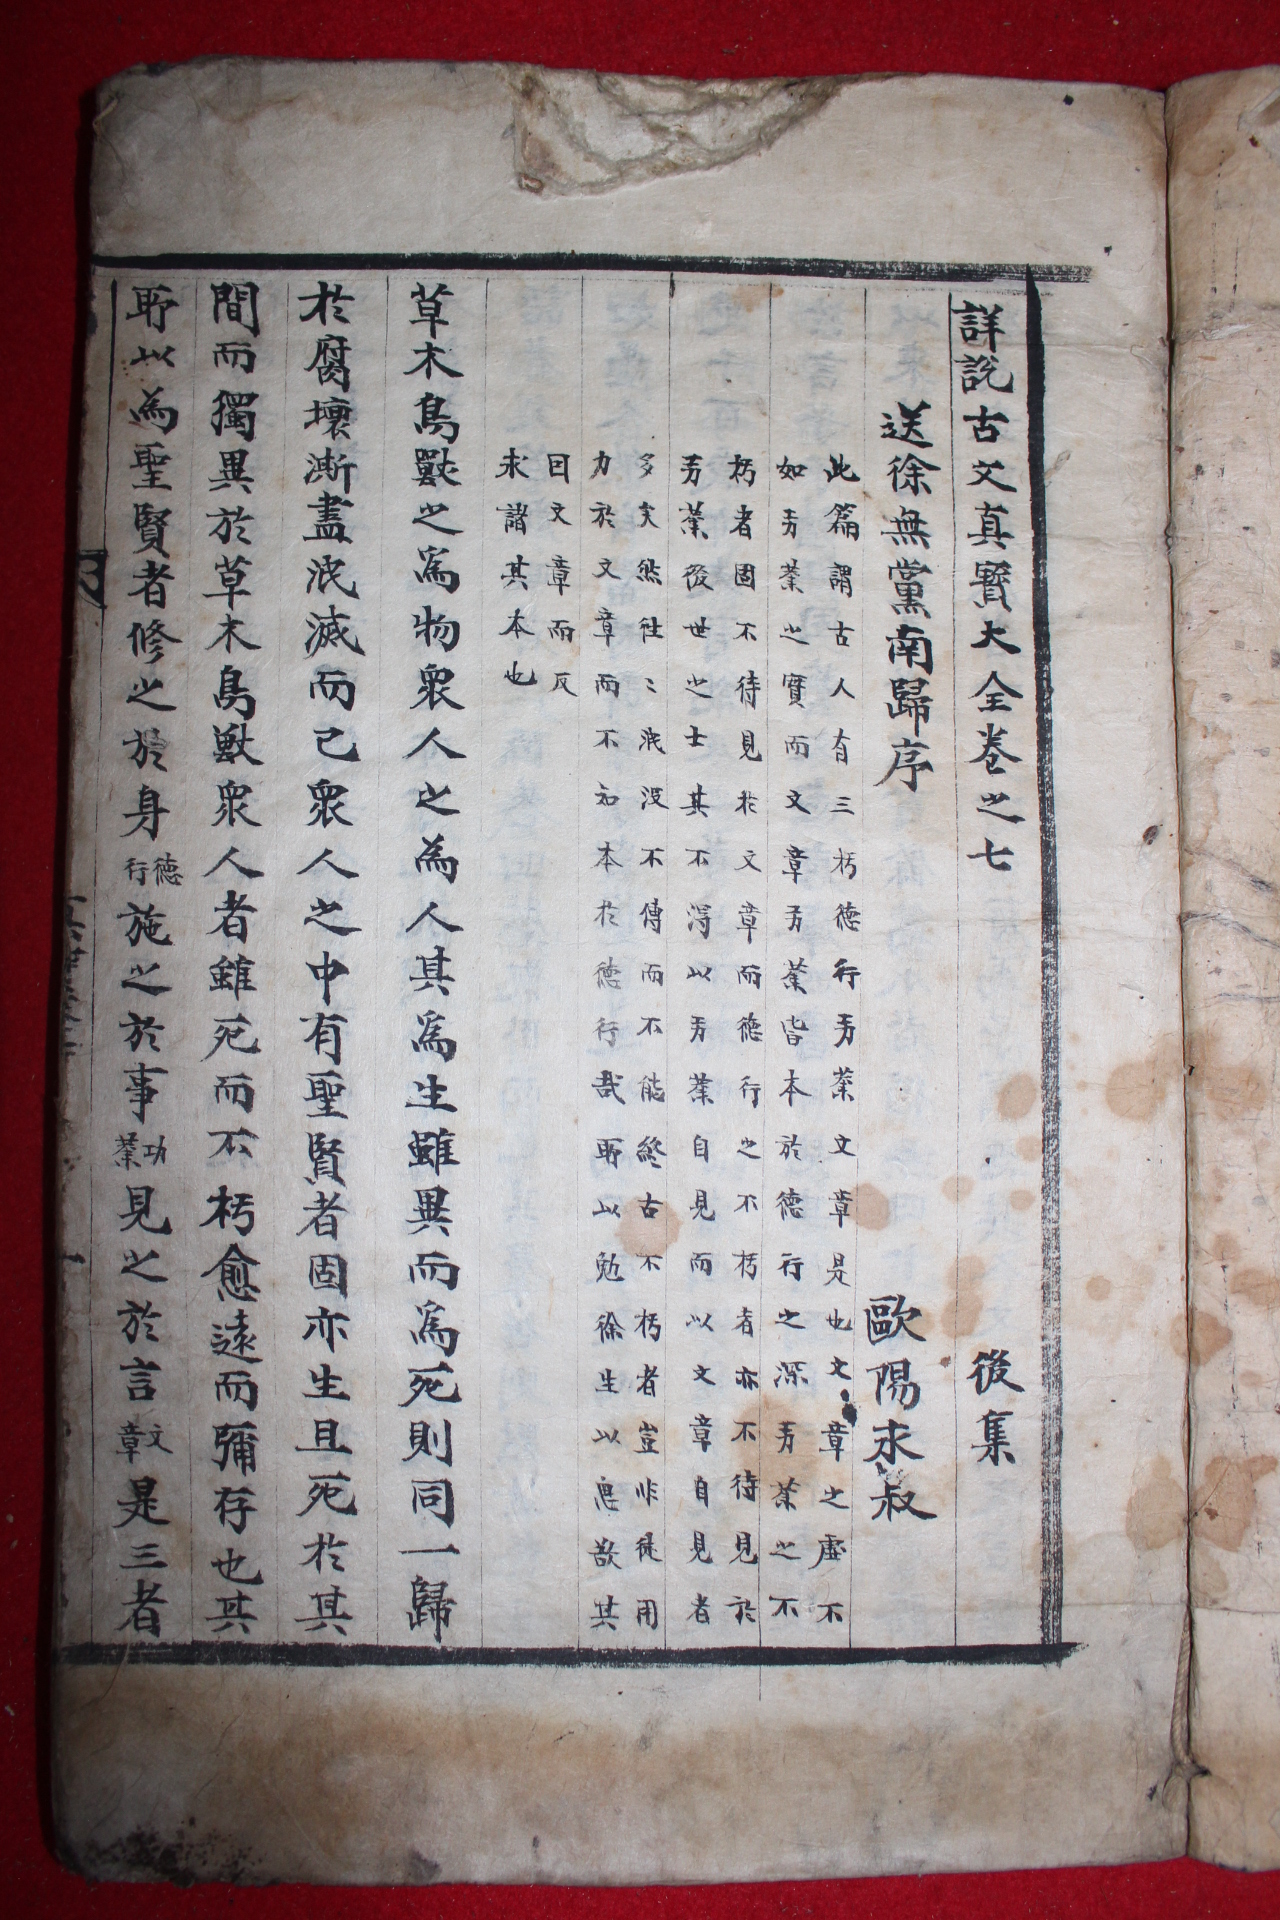 詳說古文真寶大全卷之七 後集
送徐無黨南歸序 歐陽永叔
此篇謂古人有三朽德行功業文章是也文章之虛不
如功業之實而文章功業皆本於德行之深功業之不
朽者固不待見於文章而德行之不朽者亦不待見於
功業後世之士其不得以功業自見而以文章自見者
多矣然往〻泯沒不傳而不能終古不朽者豈非徒用
力於文章而不知本於德行哉所以勉徐生以思欲其
因文章而反
求諸其本也
草木鳥獸之爲物衆人之為人其爲生雖異而爲死則同一歸
於腐壞漸盡泯滅而已衆人之中有聖賢者固亦生且死於其
間而獨異於草木鳥獸衆人者雖死而不朽愈遠而彌存也其
所以為聖賢者修之於身德行施之於事功業見之於言文章是三者